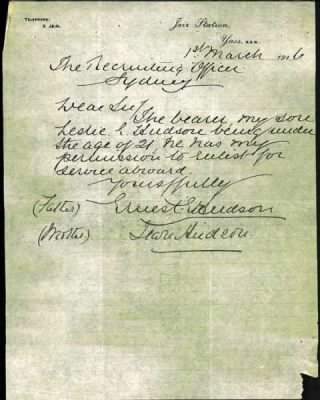 TELEPHONE:
3 JEIR.
Jeir Station,
Yass, N.S.W.
1st March 1916
The Recruiting Officer
Sydney
Dear Sir/
The bearer my son
Leslie E Hudson being under
the age of 21, he has my
permission to enlist for
service abroad
Yours ffully
(Father) Ernest E Hudson
(Mother) Hudson